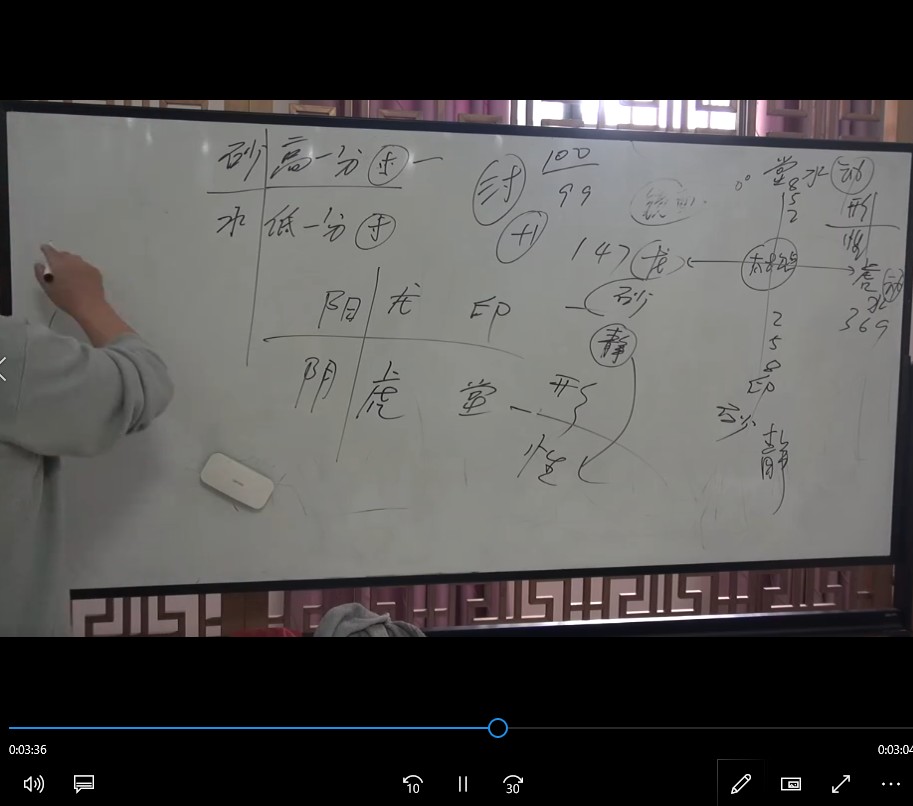 砂 高一分 于一
水 低一分 于
100
99
+1
147 龙
堂水 动
0°
8
5
2
形
性
太极点
虎 动
水
369
阳 龙 印 一砂
静
阴 虎 堂 一 形
性
2
5
8
印
砂
静
0:03:36
0:03:04
10
30